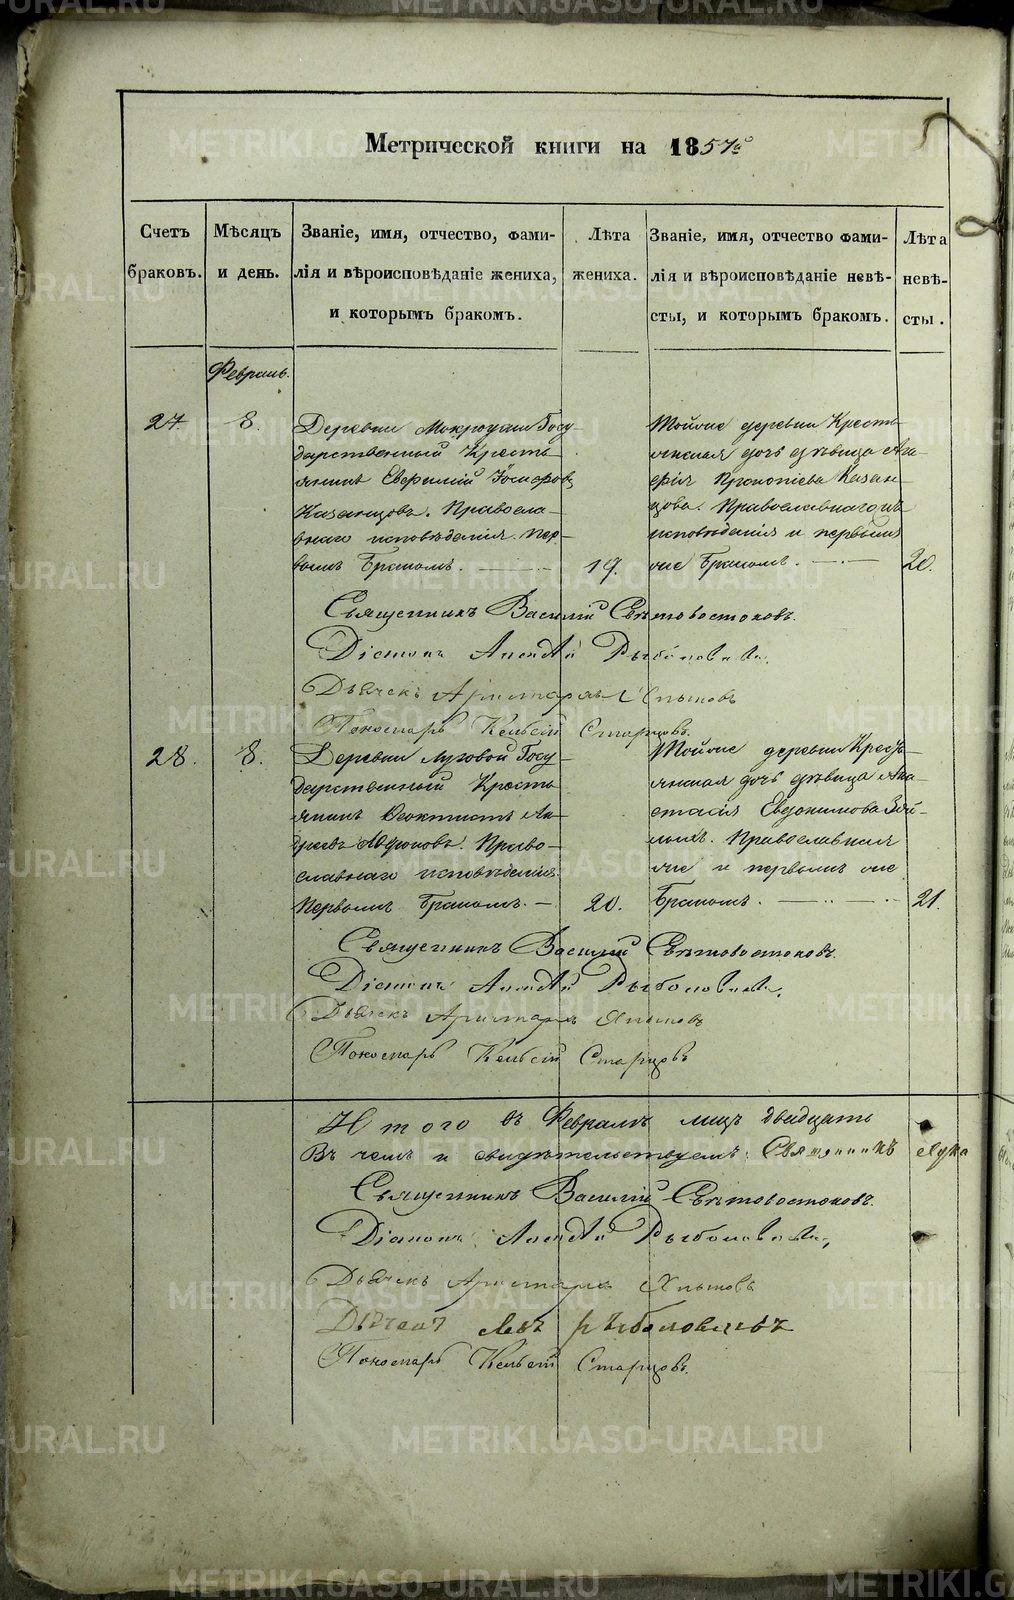 Метрической книги на 1857й
Счетъ браковъ.
Мѣсяцъ и день.
Званіе, имя, отчество, фами-
лія и вѣроисповѣданіе жениха,
и которымъ бракомъ.
Лѣта
жениха.
Званіе, имя, отчество фами-
лія и вѣроисповѣданіе невѣ-
сты, и которымъ бракомъ.
Лѣта
невѣ-
сты.
Февраль.
27. 8.
Деревни Госу-
дарственный Кресть-
янинъ Евфимій
Казанцовъ. Правосла-
внаго исповѣданія. пер-
вымъ бракомъ. 19.
Тойже деревни Кресть-
янская дочь дѣвица Ага-
фія Прокопіева Казан-
цова. Православнаго
исповѣданія и первымъ
же бракомъ. 20.
Священникъ Василій Свѣтовостоковъ.
Діаконъ Рыболовлевъ.
Дьячекъ Аристархъ
Пономарь Старцовъ.
28. 8.
Деревни Луговой Госу-
дарственный Кресть-
янинъ Феоктистъ Ан-
дреевъ Право-
славнаго исповѣданія
Первымъ бракомъ. 20.
Тойже деревни Крестъ-
янская дочь дѣвица Ана-
стасія Евдокимова
Православная
же и первымъ же
бракомъ. 21.
Священникъ Василій Свѣтовостоковъ.
Діаконъ Рыболовлевъ.
Дьячекъ Аристархъ
Пономарь Старцовъ
Итого въ Февралѣ лицъ двадцать
Въ чемъ и свидѣтельствуемъ: Священникъ Лука
Священникъ Василій Свѣтовостоковъ.
Діаконъ Рыболовлевъ.
Дьячекъ Аристархъ
Дьячекъ Левъ Рыболовлевъ
Пономарь Старцовъ.
METRIKI.GASO-URAL.RU